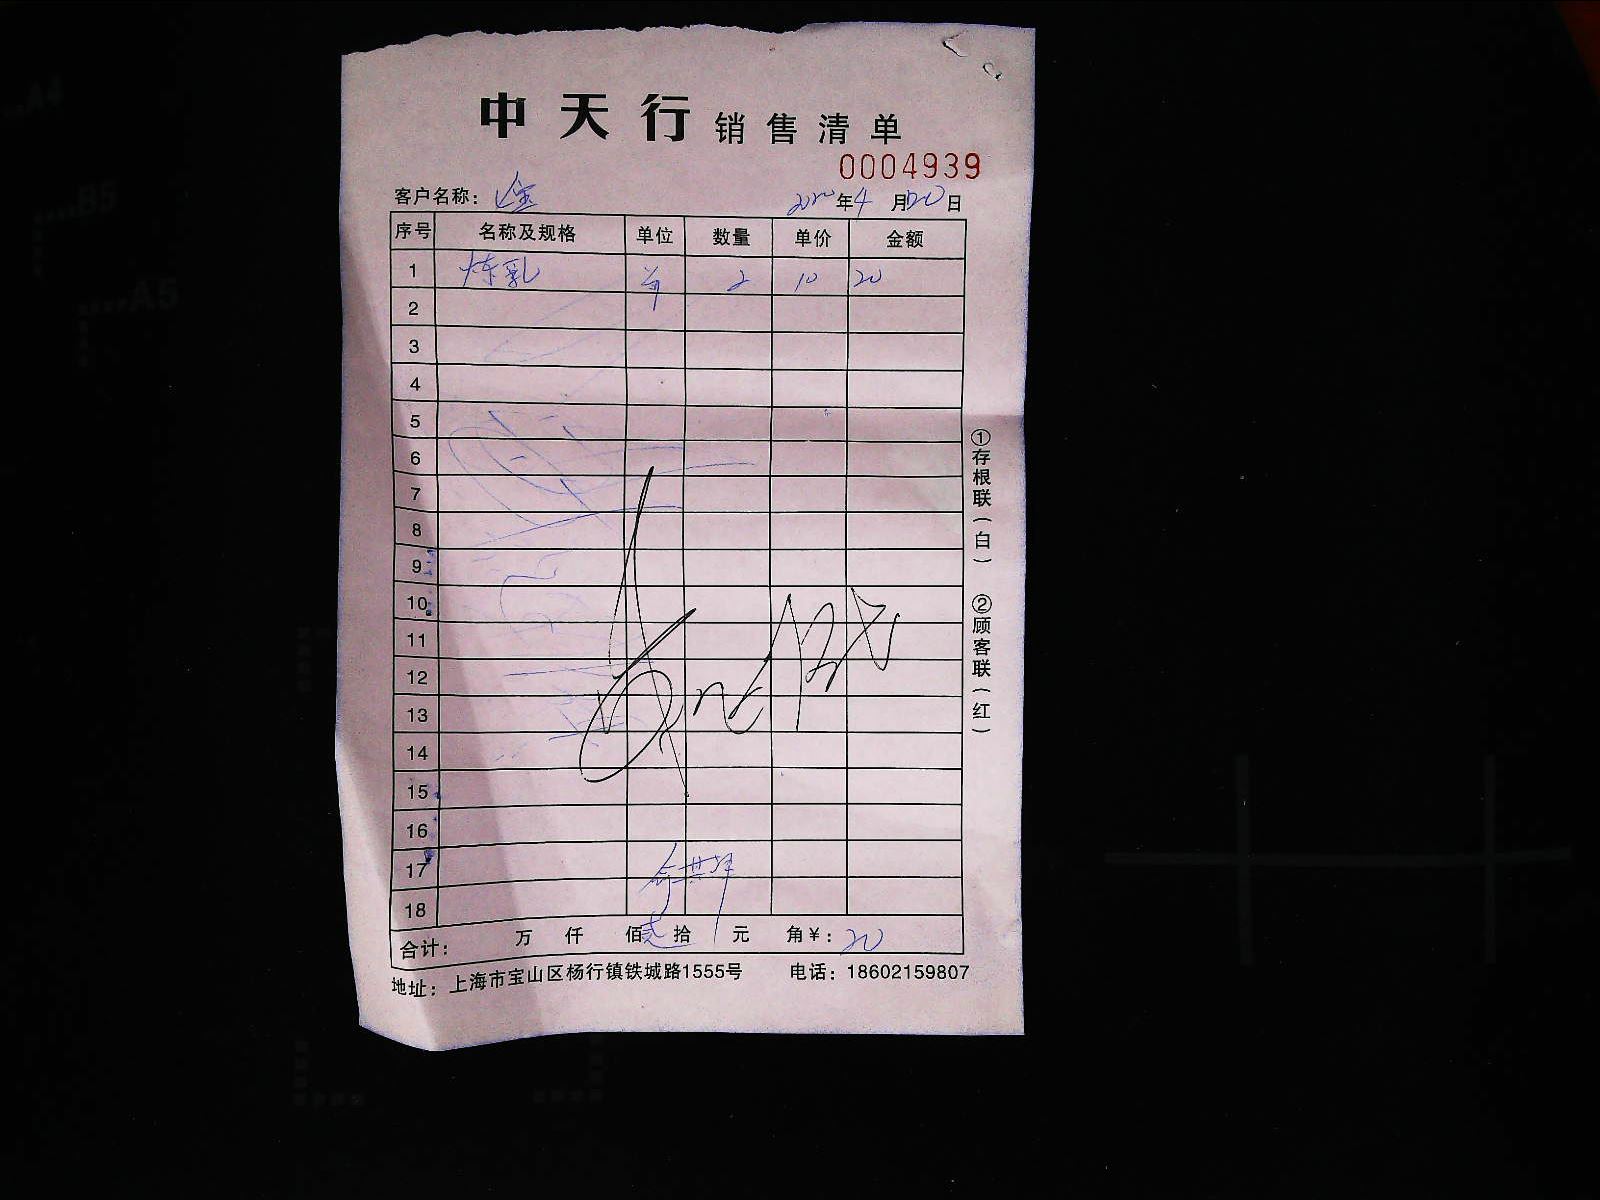 中天行 销售清单
0004939
客户名称：
2020年4月20日
序号 名称及规格 单位 数量 单价 金额
1 炼乳 2 10 20
2
3
4
5
6
7
8
9
10
11
12
13
14
15
16
17
18
合计： 万 仟 佰 贰拾 元 角 ¥：20
地址：上海市宝山区杨行镇铁城路1555号 电话：18602159807
①存根联（白） ②顾客联（红）
A4
B5
A5